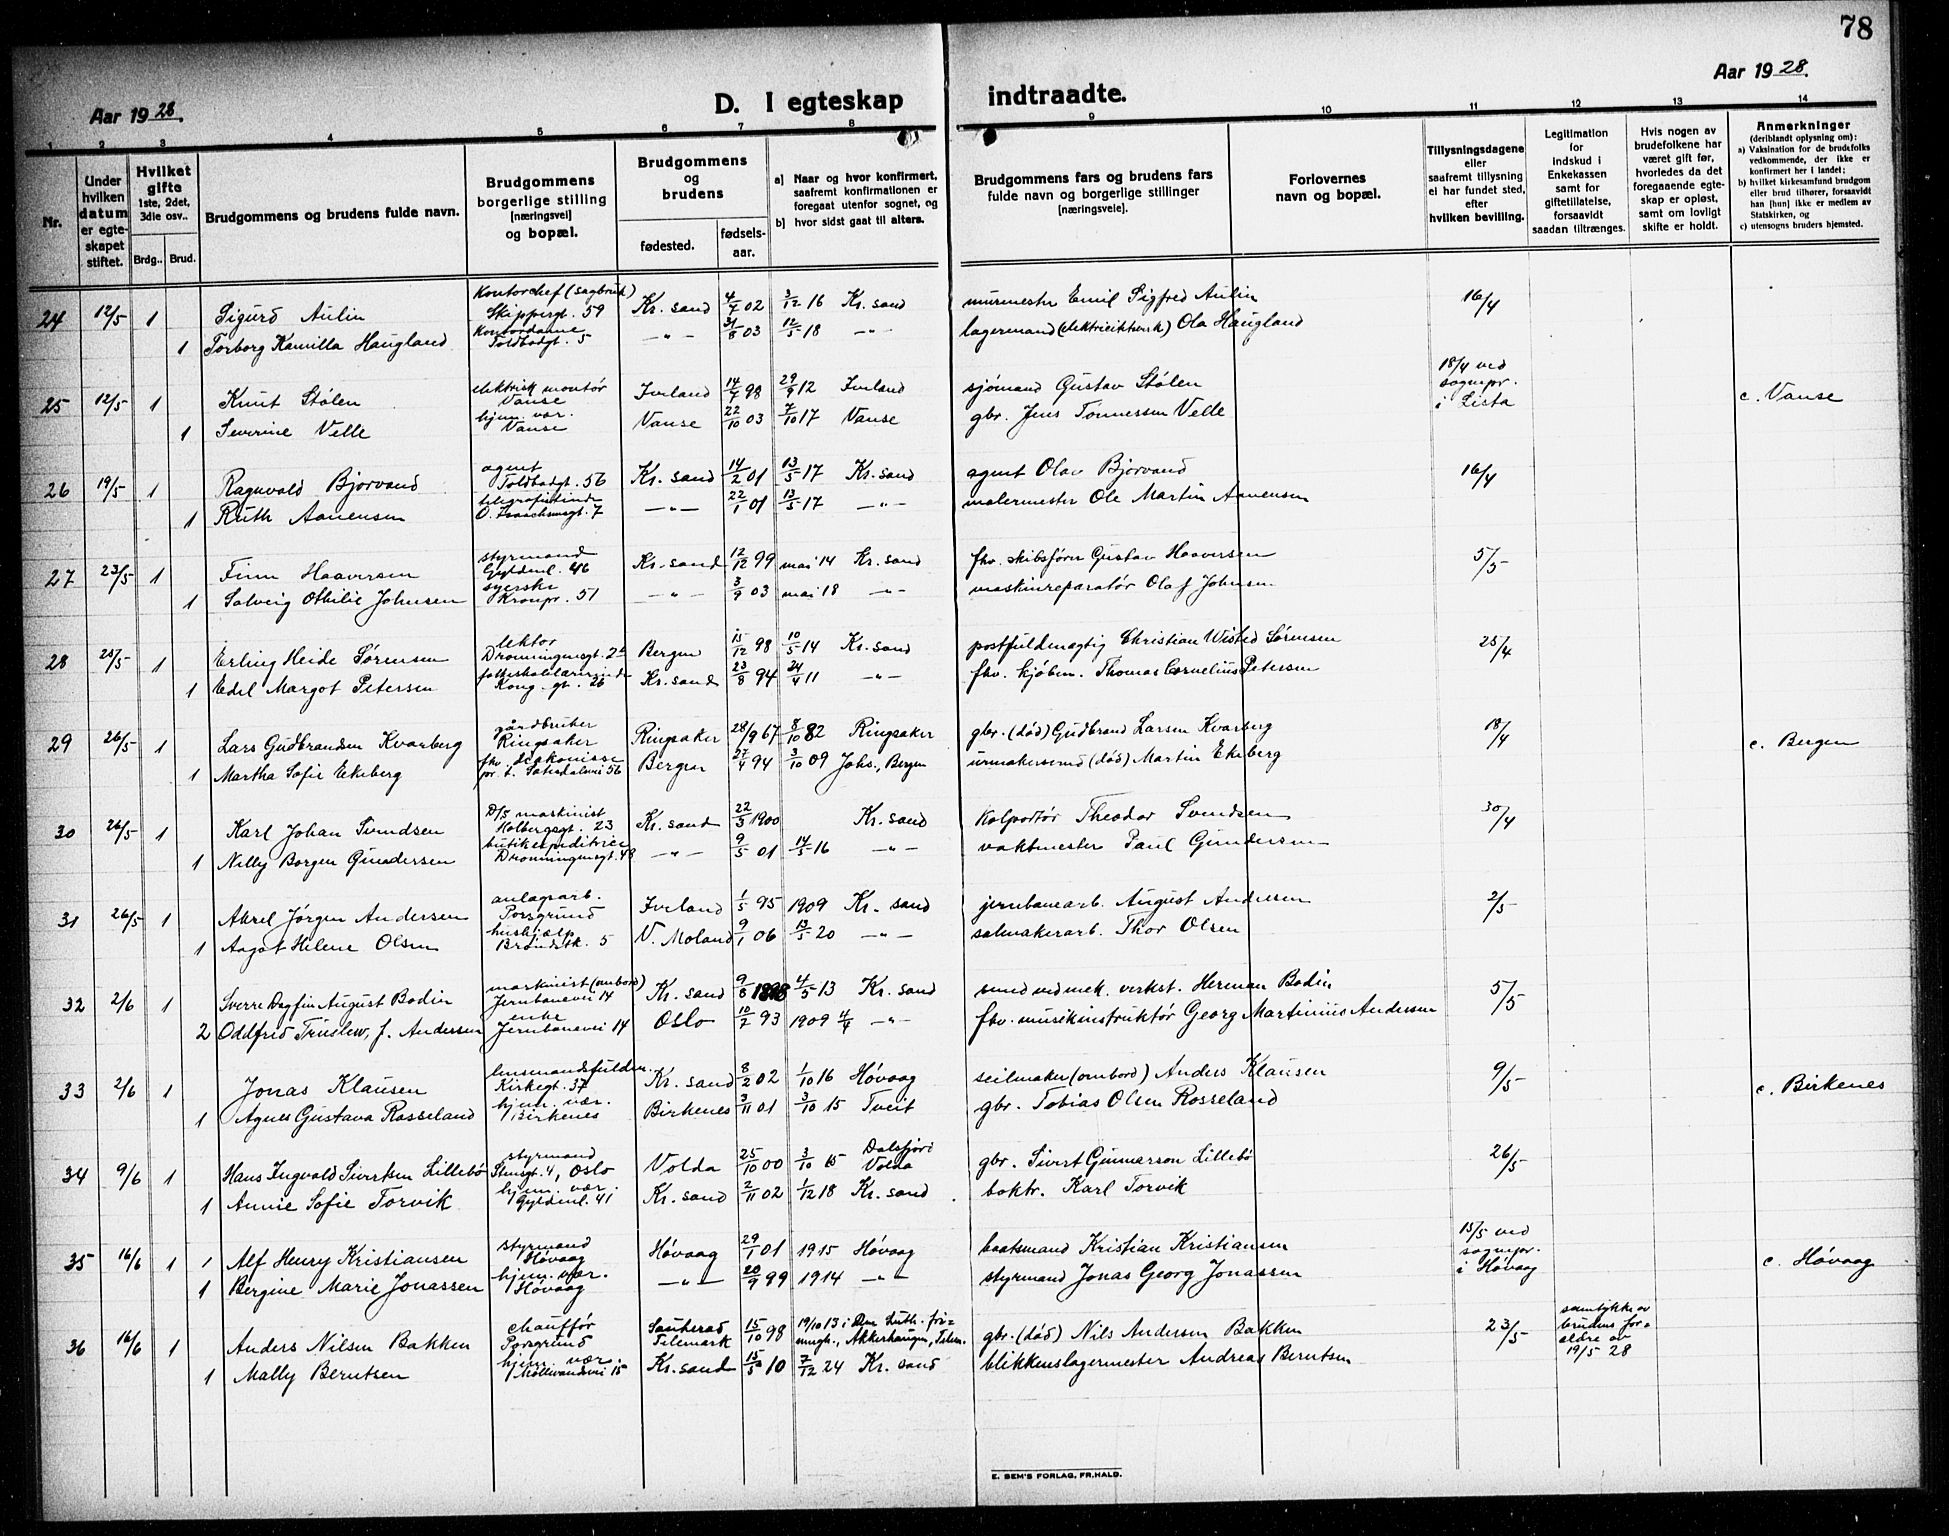 78
Aar 1928.
D. I egteskap indtraadte.
Aar 1928.
1 2 3 4 5 6 7 8 9 10 11 12 13 14
Nr.
Under hvilken datum er egteskapet stiftet.
Hvilket gifte 1ste, 2det, 3die osv..
Brdg..
Brud.
Brudgommens og brudens fulde navn.
Brudgommens borgerlige stilling [næringsvei] og bopæl.
Brudgommens og brudens
fødested.
fødselsaar.
a] Naar og hvor konfirmert, saafremt konfirmationen er foregaat utenfor sognet, og
b] hvor sidst gaat til alters.
Brudgommens fars og brudens fars fulde navn og borgerlige stillinger [næringsveie].
Forlovernes navn og bopæl.
Tillysningsdagene eller saafremt tillysning ei har fundet sted, efter hvilken bevilling.
Legitimation for indskud i Enkekassen samt for giftetillatelse, forsaavidt saadan tiltrænges.
Hvis nogen av brudefolkene har været gift før, hvorledes da det foregaaende egteskap er opløst, samt om lovligt skifte er holdt.
Anmerkninger (deriblandt oplysning om): a) Vaksination for de brudefolks vedkommende, der ikke er konfirmert her i landet; b) hvilket kirkesamfund brudgom eller brud tilhører, forsaavidt han [hun] ikke er medlem av Statskirken, og c) utensogns bruders hjemsted.
24 12/5 1 Sigurd Aulin Kontorchef (sagbruk) Skippergt. 59 Kr. sand 4/7 02 3/12 16 Kr. sand murmester Emil Sigfred Aulin 16/4
1 Torborg Kamilla Haugland Kontordame Toldbodgt. 5 —"— 31/8 03 12/5 18 —"— lagermand (elektricitetsverk) Ola Haugland
25 12/5 1 Knut Stølen elektrisk montør Vanse Iveland 14/7 98 29/9 12 Iveland sjømand Gustav Stølen 18/4 ved sognepr. i Lista c. Vanse
1 Severine Velle hjem. vær. Vanse Vanse 22/10 03 7/10 17 Vanse gbr. Jens Tønnessen Velle
26 19/5 1 Ragnvald Bjorvand agent Toldbodgt. 56 Kr. sand 14/2 01 13/5 17 Kr. sand agent Olav Bjorvand 16/4
1 Ruth Aanensen telegrafistinde O. Isaachsensgt. 7 —"— 22/1 01 13/5 17 —"— malermester Ole Martin Aanensen
27 23/5 1 Finn Haaversen styrmand Gyldenl. 46 Kr. sand 12/12 99 mai 14 Kr. sand fhv. skibsfører Gustav Haaversen 5/5
1 Solveig Othilie Johnsen syerske Kronpr. 51 —"— 3/9 03 mai 18 —"— maskinreparatør Olaf Johnsen
28 25/5 1 Erling Heide Sørensen lektor Dronningensgt. 2 Bergen 15/12 98 10/5 14 Kr. sand postfuldmægtig Christian Wisted Sørensen 25/4
1 Edel Margot Petersen folkeskolelærerinde Kong. gt. 26 Kr. sand 23/8 94 24/4 11 —"— fhv. kjøbm. Thomas Cornelius Petersen
29 26/5 1 Lars Gudbrandsen Kvarberg gårdbruker Ringsaker Ringsaker 28/9 67 8/10 82 Ringsaker gbr. (død) Gudbrand Larsen Kvarberg 18/4 c. Bergen
1 Martha Sofie Ekeberg fhv. diakonisse pr. t. Setesdalsvei 56 Bergen 27/4 94 3/10 09 Johs., Bergen urmakersvend (død) Martin Ekeberg
30 26/5 1 Karl Johan Svendsen D/S maskinist Holbergsgt. 23 Kr. sand 22/3 1900 Kr. sand Kolportør Theodor Svendsen 30/4
1 Nelly Borgen Gundersen butikexpeditrice Dronningensgt. 48 —"— 9/5 01 14/5 16 —"— vaktmester Paul Gundersen
31 26/5 1 Aksel Jørgen Andersen anlagsarb. Porsgrund Iveland 1/5 95 1909 Kr. sand jernbanearb. August Andersen 2/5
1 Aagot Helene Olsen hushjælp Brøndstk. 5 V. Moland 9/1 06 13/5 20 —"— salmakerarb. Thor Olsen
32 2/6 1 Sverre Dagfin August Bodin maskinist (ombord) Jernbanevei 14 Kr. sand 9/8 1898 4/5 13 Kr. sand smed ved mek. verkst. Herman Bodin 5/5
2 Oddfrid Truslew, f. Andersen enke Jernbanevei 14 Oslo 10/2 93 1909 4/4 —"— fhv. musikinstruktør Georg Martinius Andersen
33 2/6 1 Jonas Klausen lensmandsfuldm. Kirkegt. 37 Kr. sand 8/2 02 1/10 16 Høvaag seilmaker (ombord) Anders Klausen 9/5 c. Birkenes
1 Agnes Gustava Rosseland hjem. vær. Birkenes Birkenes 3/11 01 3/10 15 Tveit gbr. Tobias Olsen Rosseland
34 9/6 1 Hans Ingvald Sivertsen Lillebø styrmand Stensgt. 4, Oslo Volda 25/10 00 3/10 15 Dalsfjord Volda gbr. Sivert Gunnarson Lillebø 26/5
1 Annie Sofie Torvik hjem. vær. Gyldenl. 41 Kr. sand 2/11 02 1/12 18 Kr. sand boktr. Karl Torvik
35 16/6 1 Alf Henry Kristiansen styrmand Høvaag Høvaag 29/1 01 1915 Høvaag baatsmand Kristian Kristiansen 15/5 ved sognepr. i Høvaag c. Høvaag
1 Bergine Marie Jonassen hjem. vær. Høvaag —"— 20/9 99 1914 —"— styrmand Jonas Georg Jonassen
36 16/6 1 Anders Nilsen Bakken chauffør Porsgrund Sauherad Telemark 15/10 98 19/10 13 i Den Luth. frimngh., Akkerhaugen, Telem. gbr. (død) Nils Andersen Bakken 23/5 samtykke av brudens forældre av 19/5 28
1 Mally Berntsen hjem. vær. Møllevandsvei 15 Kr. sand 15/5 10 7/12 24 Kr. sand blikkenslagermester Andreas Berntsen
E. SEM'S FORLAG, FR.HALD.